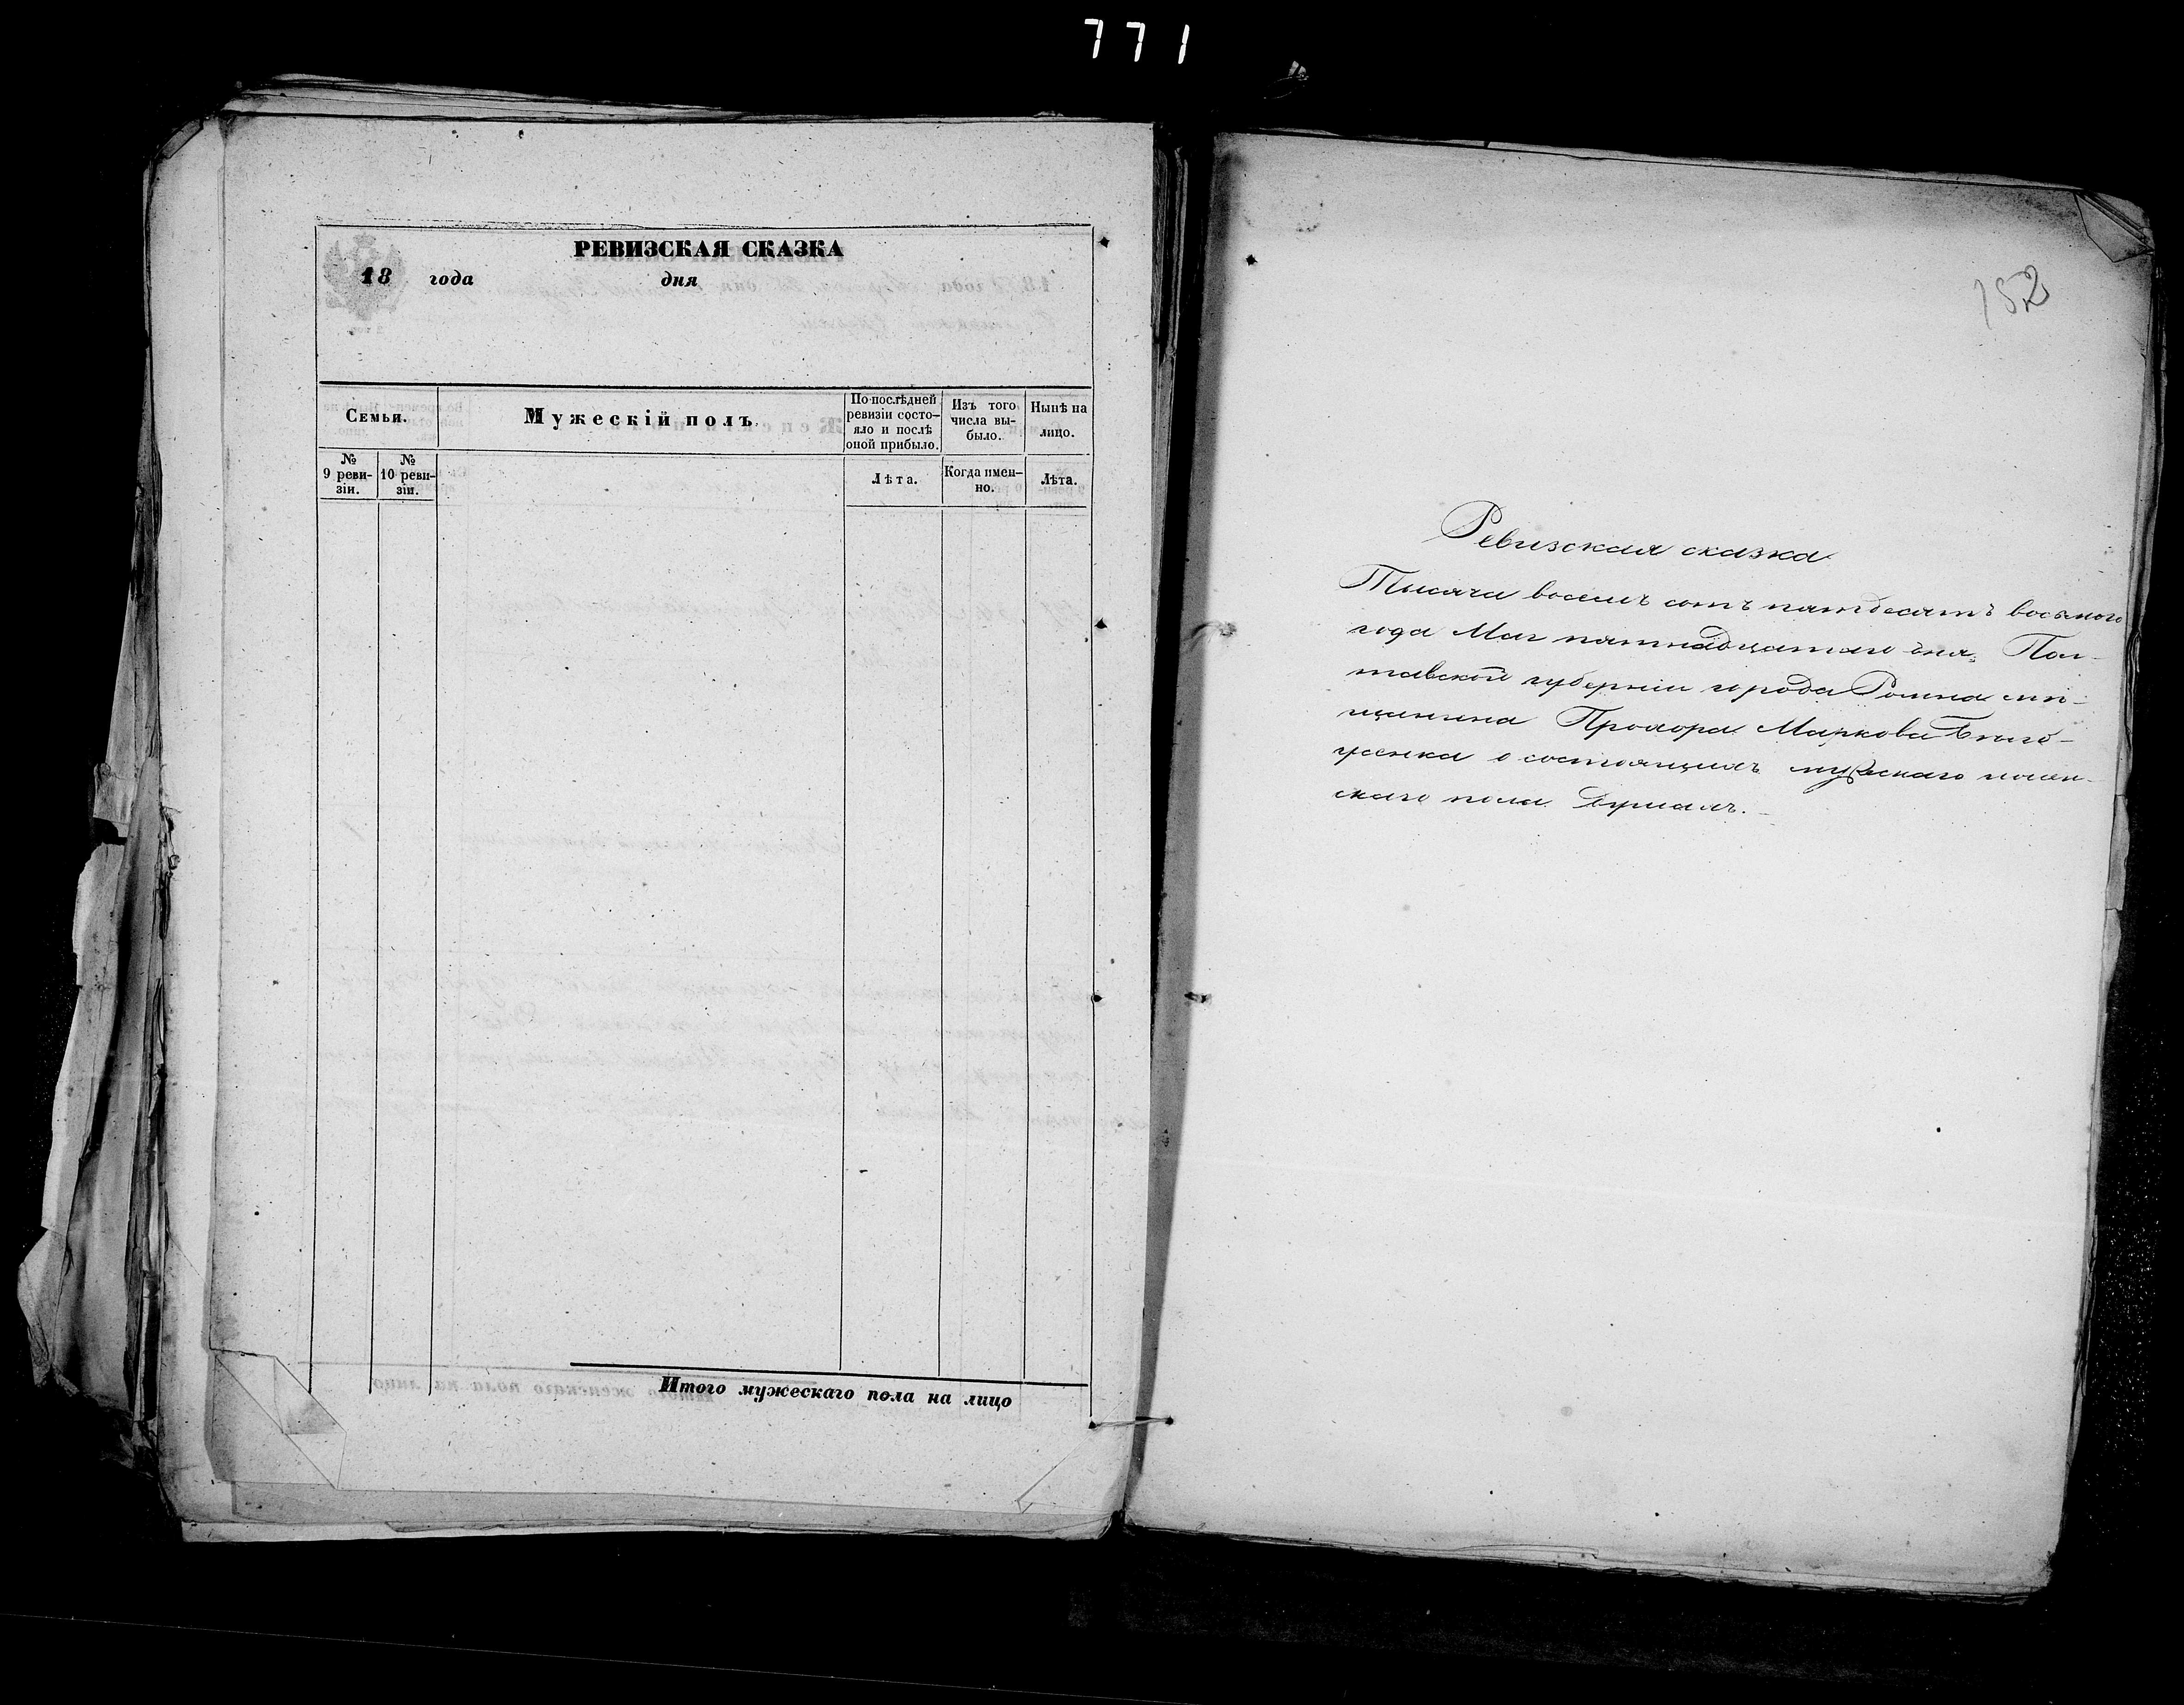 771
РЕВИЗСКАЯ СКАЗКА
18 года дня
Семьи.
Мужескій полъ.
По послѣдней ревизіи состо-
яло и послѣ оной прибыло.
Изъ того числа вы-
было.
Нынѣ на лицо.
№ 9 реви-
зіи.
№ 10 реви-
зіи.
Лѣта.
Когда имен-
но.
Лѣта.
Итого мужескаго пола на лицо
152
Ревизская сказка
Тысяча восемь сотъ пятдесятъ восьмого
года Мая пятнадцатаго дня, Пол-
тавской губерніи города Ромна мѣ-
щанина Прохора Маркова
о состоящихъ мужескаго и женс-
скаго пола душахъ.